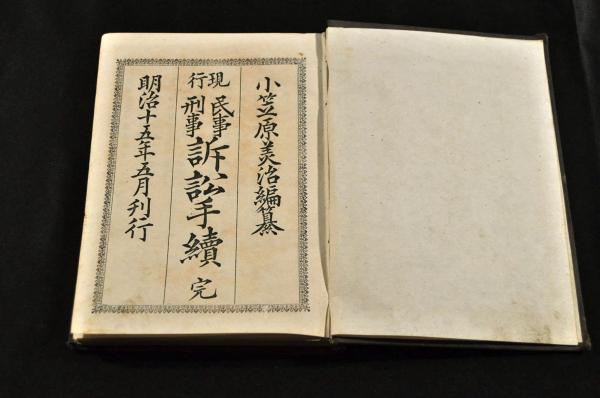 小笠原美治編纂
現行 民事刑事訴訟手續 完
明治十五年五月刊行